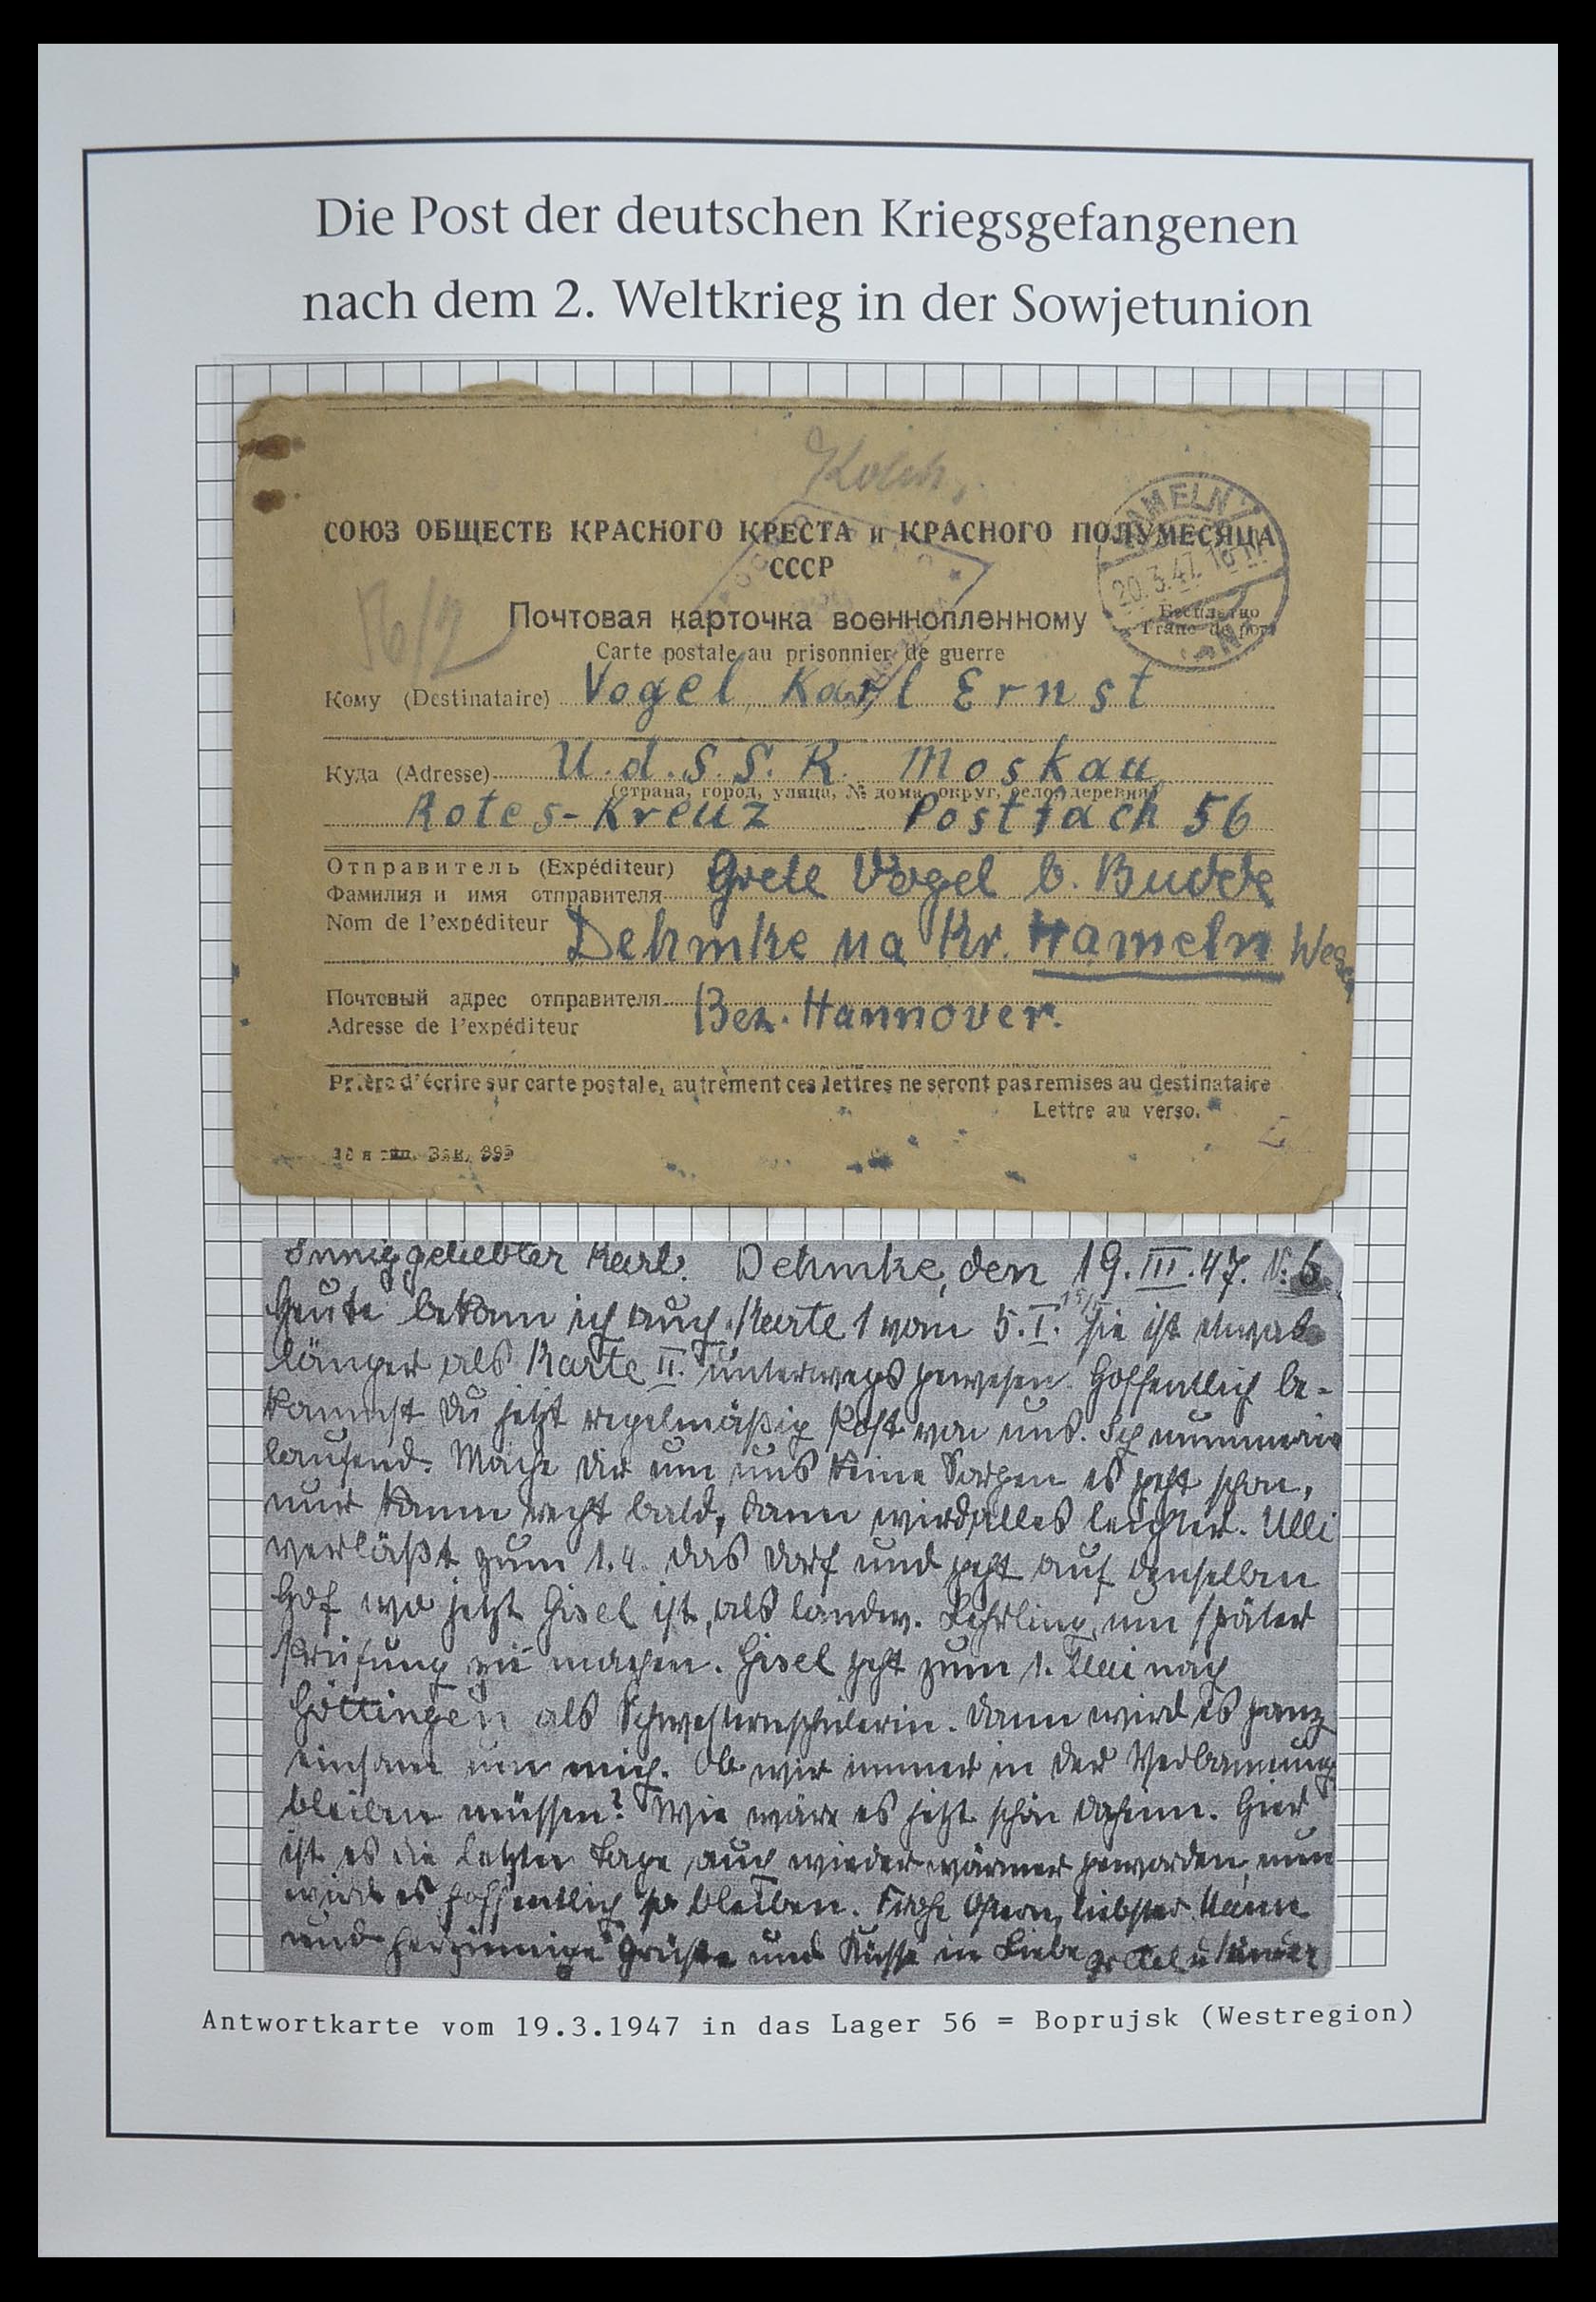 Die Post der deutschen Kriegsgefangenen
nach dem 2. Weltkrieg in der Sowjetunion
Kolch.
HAMELN
20.3.47. 18
СОЮЗ ОБЩЕСТВ КРАСНОГО КРЕСТА и КРАСНОГО ПОЛУМЕСЯЦА
СССР
56/2
Почтовая карточка военнопленному
Бесплатно
Franc de port
Carte postale au prisonnier de guerre
Кому (Destinataire) Vogel, Karl Ernst
Куда (Adresse) U.d.S.S.R. Moskau
(страна, город, улица, № дома, округ, село, деревня)
Rotes-Kreuz Postfach 56
Отправитель (Expéditeur)
Фамилия и имя отправителя Grete Vogel b. Budde
Nom de l'expéditeur
Dehmke üa Kr. Hameln Weser
Почтовый адрес отправителя
Adresse de l'expéditeur Bez. Hannover.
Prière d'écrire sur carte postale, autrement ces lettres ne seront pas remises au destinataire
Lettre au verso.
Зак. 395
Inniggeliebter Karl. Dehmke, den 19.III.47. N: 6
Heute bekam ich auch Karte 1 vom 5.I. sie ist etwas
länger als Karte II. unterwegs gewesen. Hoffentlich be-
kommst Du jetzt regelmäßig Post von uns. Ich nummerie
laufend. Mache Dir um uns keine Sorgen es geht schon,
nur komm recht bald, dann wird alles leichter. Ulli
verläßt zum 1.4. das Dorf und geht auf denselben
Hof wo jetzt Gisel ist, als landw. Lehrling, um später
Prüfung zu machen. Gisel geht zum 1. Mai nach
Göttingen als Schwesternschülerin. Dann wird es ganz
einsam um mich. Ob wir immer in der Verbannung
bleiben müssen? Wie wäre es jetzt schön daheim. Hier
ist es die letzten Tage auch wieder wärmer geworden, nun
wird es hoffentlich so bleiben. Frohe Ostern, liebster Mann
und herzinnige Grüße und Küsse in Liebe Gretel u Kinder
Antwortkarte vom 19.3.1947 in das Lager 56 = Boprujsk (Westregion)